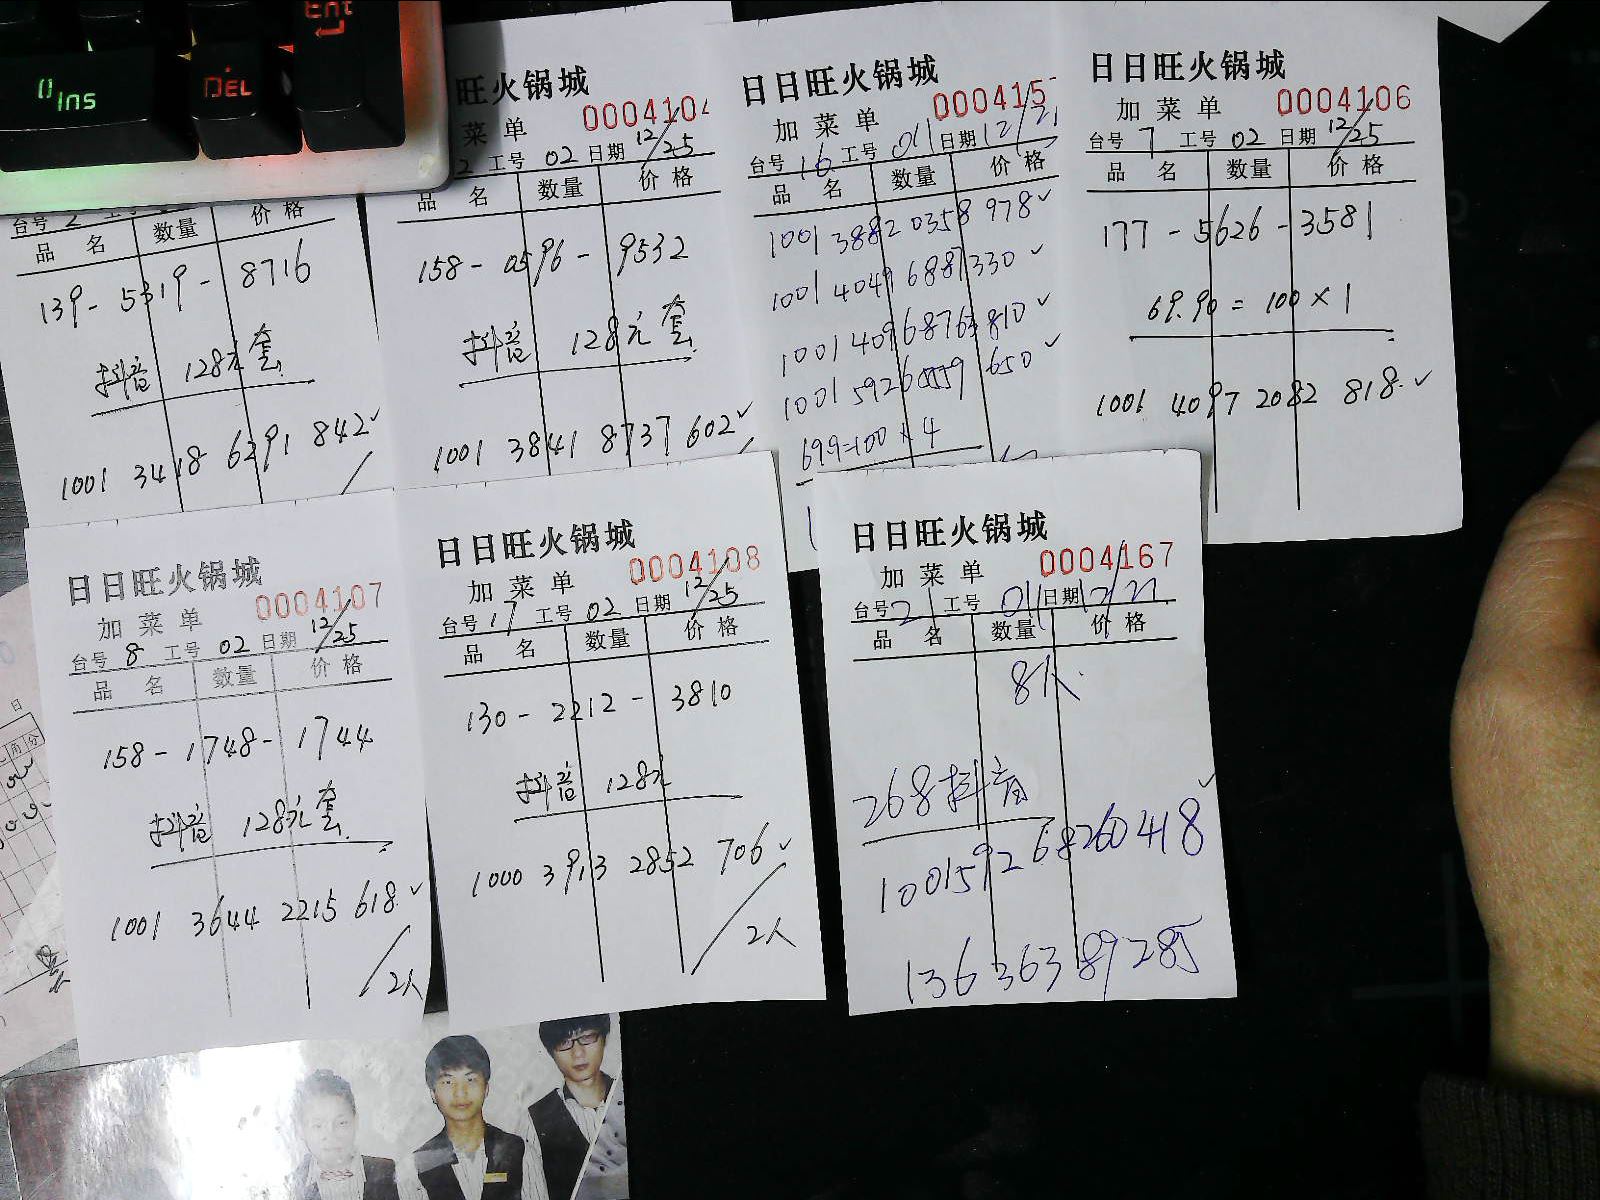 Ent
Ins
DEL
台号 2 工号
品 名 数量 价格
139-5319-8716
抖音 128元套
1001 3418 6291 842✓
旺火锅城
菜单 000410
2 工号 02 日期 12/25
品 名 数量 价格
158-0596-9532
抖音 128元套
1001 3841 8737 602✓
日日旺火锅城
加菜单 000415
台号 16 工号 011 日期 12/21
品 名 数量 价格
1001 3882 0358 978✓
1001 4049 6881 330✓
1001 4096 8763 810✓
1001 5926 0559 650✓
699=100×4
日日旺火锅城
加菜单 0004106
台号 7 工号 02 日期 12/25
品 名 数量 价格
177-5626-3581
69.90=100×1
1001 4097 2082 818.✓
日日旺火锅城
加菜单 0004107
台号 8 工号 02 日期 12/25
品 名 数量 价格
158-1748-1744
抖音 128元套
1001 3644 2215 618✓
2人
日日旺火锅城
加菜单 0004108
台号 17 工号 02 日期 12/25
品 名 数量 价格
130-2212-3810
抖音 128元
1000 3913 2852 706✓
2人
日日旺火锅城
加菜单 0004167
台号 2 工号 011 日期 12/21
品 名 数量 价格
8人
268抖音
1001592 68260418✓
13636389285
日
角 分